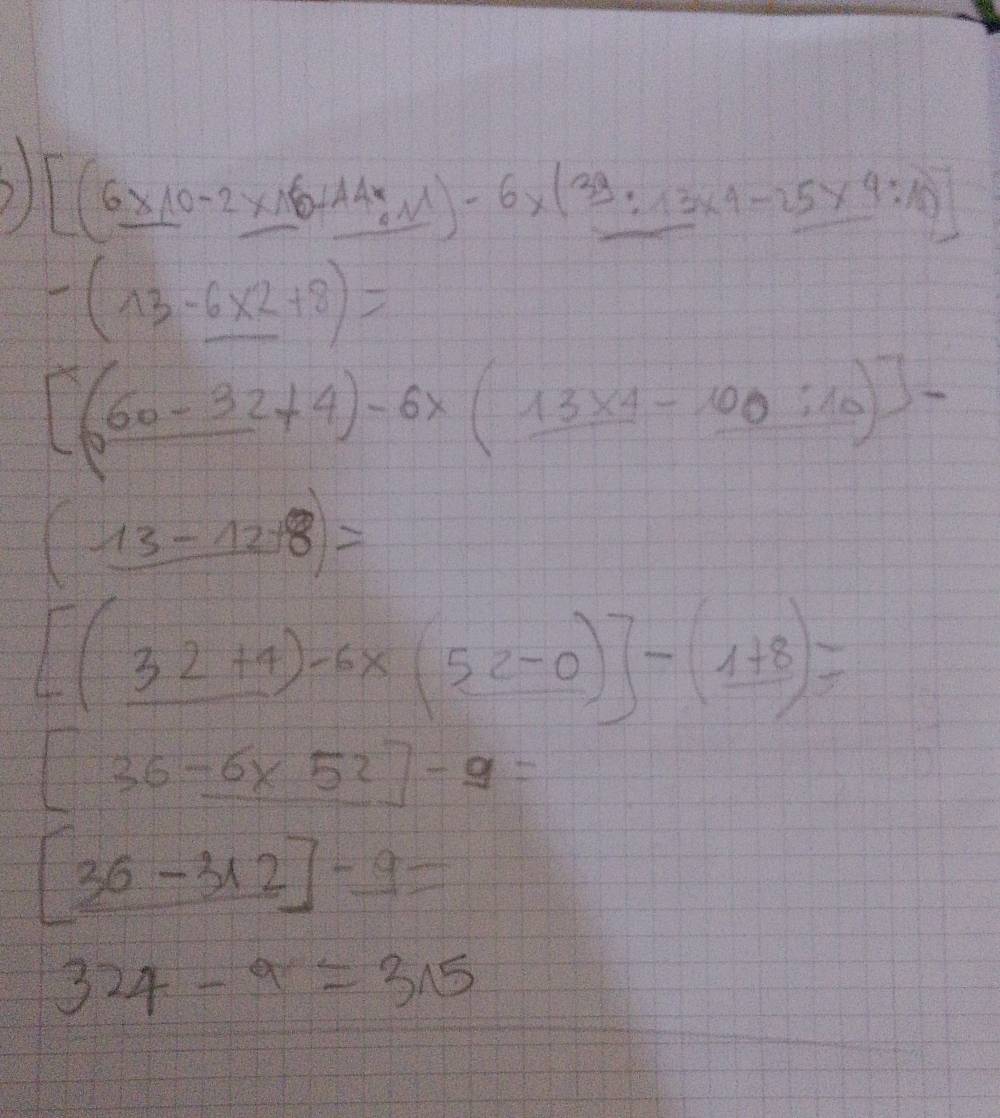 [(6x10-2x16+44:11)-6x(39:13x4-25x4:10)]
-(13-6x2+8)=
[(60-32+4)-6x(13x4-100:10)]-
(13-12+8)=
[(32+4)-6x(52-0)]-(1+8)=
[36-6x52]-9=
[36-312]-9=
324-9=315